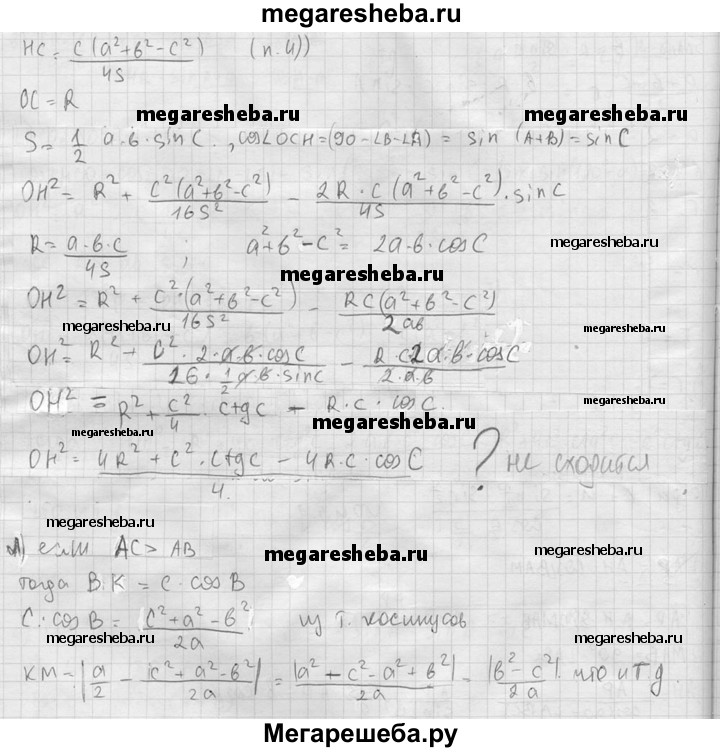 megaresheba.ru
HC = c(a²+b²-c²)/4S (п. 4))
OC = R
megaresheba.ru megaresheba.ru
S = 1/2 a·b·sinC., cos∠OCH = (90-∠B-∠A) = sin (A+B) = sin C
OH² = R² + c²(a²+b²-c²)/16S² - 2R·c(a²+b²-c²)/4S · sinC
R = a·b·c/4S ; a²+b²-c² = 2a·b·cosC
megaresheba.ru
megaresheba.ru
OH² = R² + c²·(a²+b²-c²)/16S² - Rc(a²+b²-c²)/2ab
megaresheba.ru megaresheba.ru
OH² = R² + c²·2·a·b·cosC/16·1/2 a·b·sinC - R·c2a·b·cosC/2·a·b
OH² = R² + c²/4 · ctgc - R·c·cosC.
megaresheba.ru megaresheba.ru megaresheba.ru
OH² = 4R² + c²·ctgc - 4R·c·cosC/4. ? не сходится
megaresheba.ru megaresheba.ru
если AC > AB
megaresheba.ru
тогда BK = c·cosB
c·cosB = c²+a²-b²/2a из т. косинусов
megaresheba.ru megaresheba.ru
KM = |a/2 - c²+a²-b²/2a| = |a²-c²-a²+b²|/2a = |b²-c²|/2a. что и т.д.
Мегарешеба.ру